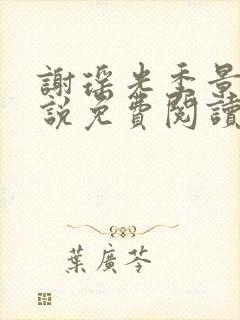 謝瑤光季景
說免費閱讀
葉廣芩